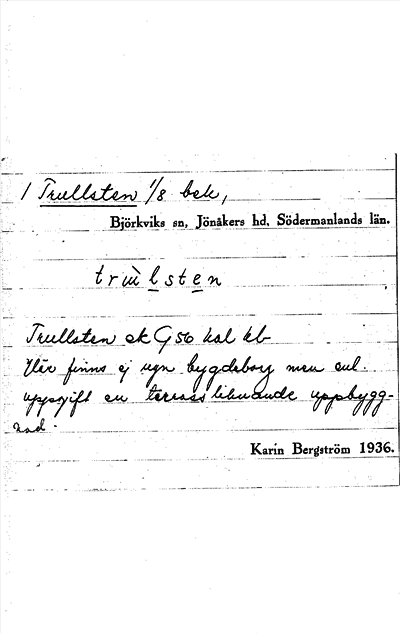 1 Trullsten 1/8 bek,
Björkviks sn, Jönåkers hd, Södermanlands län.
trùlsten
Trullsten ek G 56 kol bl
Här finns ej ngn bygdeborg men enl.
uppgift en terrassliknande uppbygg-
nad.
Karin Bergström 1936.